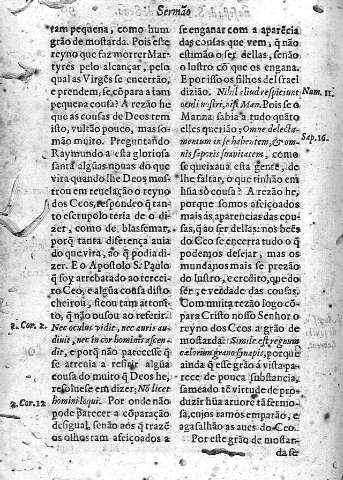 Sermão
tam pequena, como hum
grão de mostarda. Pois este
reyno que faz morrer Mar-
tyres pelo alcançar, pelo
qual as Virgẽs se encerrão,
e prendem, se cõpara a tam
pequena cousa? A rezão he
que as cousas de Deos tem
isso, vultão pouco, mas so-
mão muito. Preguntando
Raymundo a esta gloriosa
santa algũas nouas do que
vira quando lhe Deos mos-
trou em reuelação o reyno
dos Ceos, respondeo q̃ tan-
to escrupolo teria de o di-
zer, como de blasfemar,
porq̃ tanta differença auia
do que vira, ao q̃ podia di-
zer. E o Apostolo S. Paulo
q̃ soy arrebatado ao tercei-
ro Ceo, e algũa cousa disto
cheirou, ficou tam attoni-
to, q̃ não ousou ao referir.
2. Cor. 2.
Nec oculus vidit, nec auris au-
diuit, nec in cor hominis ascen-
dit, e porq̃ não parecesse q̃
se atreuia a referir algũa
cousa do muito q̃ Deos he,
resolueose em dizer; Nõ licet
2. Cor. 12.
homini loqui. Por onde não
pode parecer a cõparação
desigual, senão aos q̃ trazẽ
os olhos tam afeiçoados a
se enganar com a aparẽcia
das cousas que vem, q̃ não
estimão o ser dellas, senão
o lustro cõ que os engana.
E por isso os filhos de Israel
dizião. Nihil aliud respiciunt
Num. 11.
oculi nostri, nisi Man. Pois se o
Manna sabia a tudo quato
elles querião; Omne delecta-
Sap. 16.
mentum in se habentem, & om-
nis saporis suauitatem, como
se queixaua esta gente, de
lhe faltar, o que tinhão em
hũa só cousa? A rezão he,
porque somos afeiçoados
mais ás aparencias das cou-
sas, q̃ ao ser dellas: nos beẽs
do Ceo se encerra tudo o q̃
podemos desejar, mas os
mundanos mais se prezão
do lustro, e credito, que do
ser, e verdade das cousas.
Com muita rezão logo cõ-
para Christo nosso Senhor o
reyno dos Ceos a grão de
mostarda: Simile est regnum
cælorum grano synapis, porque
ainda q̃ esse grão á vista pa-
rece de pouca substancia,
sameado tẽ virtude de pro-
duzir hũa aruore tã fermo-
sa, cujos ramos emparão, e
agasalhão as aues do Ceo.
Por este grão de mostar-
da se